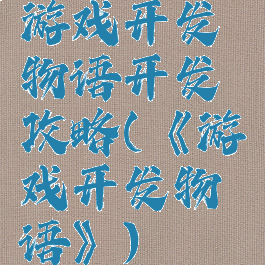 游戏开发
物语开发
攻略(《游
戏开发物
语》)